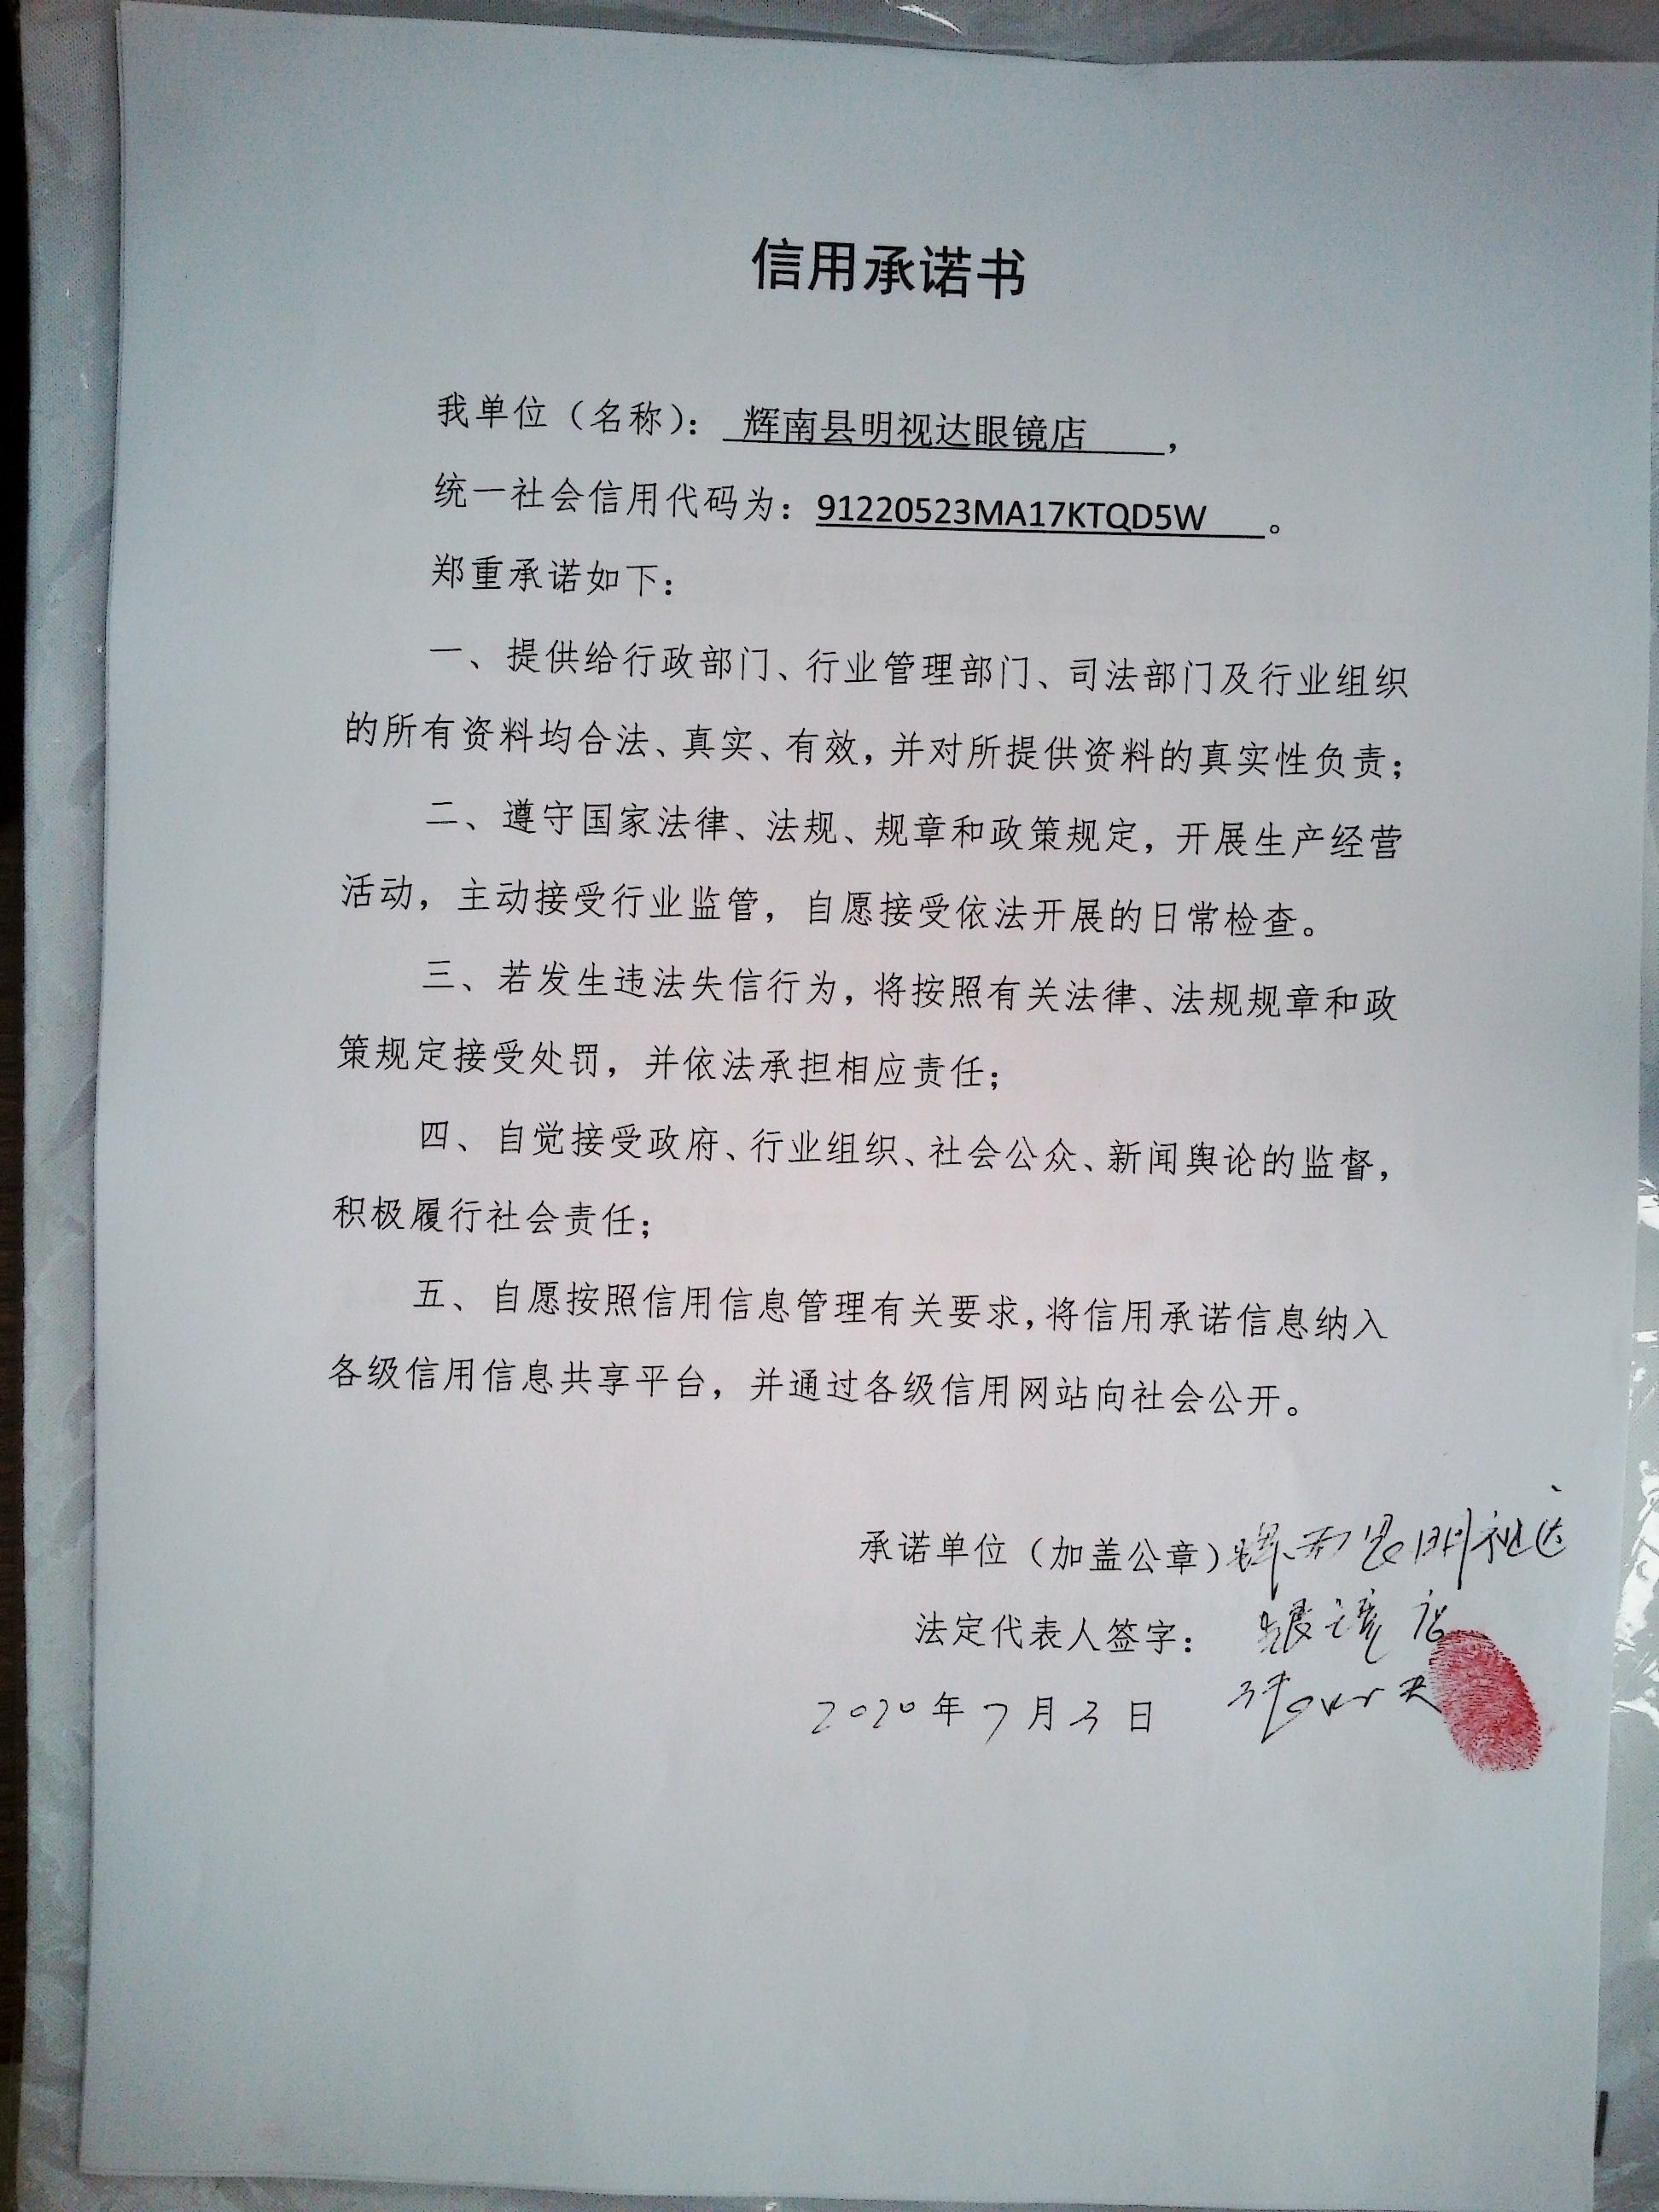 信用承诺书
我单位（名称）：辉南县明视达眼镜店，
统一社会信用代码为：91220523MA17KTQD5W。
郑重承诺如下：
一、提供给行政部门、行业管理部门、司法部门及行业组织
的所有资料均合法、真实、有效，并对所提供资料的真实性负责；
二、遵守国家法律、法规、规章和政策规定，开展生产经营
活动，主动接受行业监管，自愿接受依法开展的日常检查。
三、若发生违法失信行为，将按照有关法律、法规规章和政
策规定接受处罚，并依法承担相应责任；
四、自觉接受政府、行业组织、社会公众、新闻舆论的监督，
积极履行社会责任；
五、自愿按照信用信息管理有关要求，将信用承诺信息纳入
各级信用信息共享平台，并通过各级信用网站向社会公开。
承诺单位（加盖公章）辉南县明视达
眼镜店
法定代表人签字：
2020年7月3日